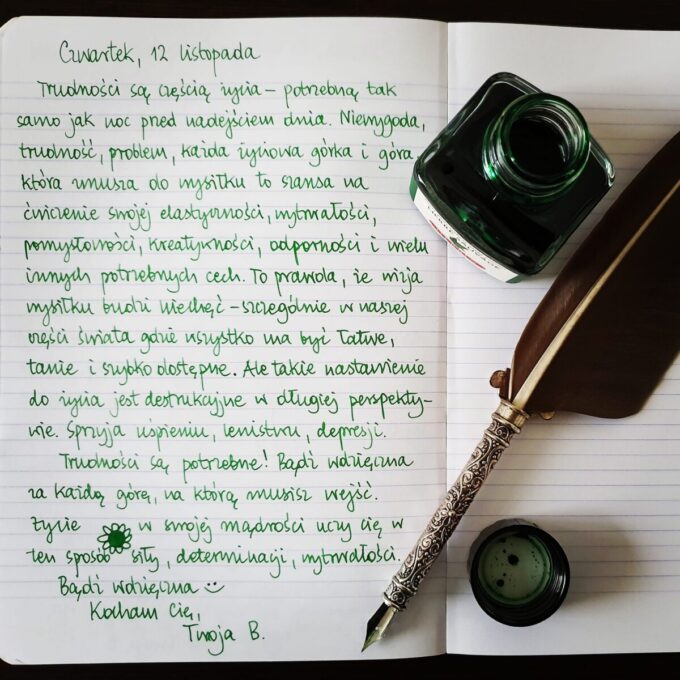 Czwartek, 12 listopada
Trudności są częścią życia – potrzebną tak
samo jak noc przed nadejściem dnia. Niewygoda,
trudność, problem, każda życiowa górka i góra
która zmusza do wysiłku to szansa na
ćwiczenie swojej elastyczności, wytrwałości,
pomysłowości, kreatywności, odporności i wielu
innych potrzebnych cech. To prawda, że wizja
wysiłku budzi niechęć – szczególnie w naszej
części świata gdzie wszystko ma być łatwe,
tanie i szybko dostępne. Ale takie nastawienie
do życia jest destrukcyjne w długiej perspekty-
wie. Sprzyja uśpieniu, lenistwu, depresji.
Trudności są potrzebne! Bądź wdzięczna
za każdą górę, na którą musisz wejść.
Życie w swojej mądrości uczy cię w
ten sposób siły, determinacji, wytrwałości.
Bądź wdzięczna
Kocham Cię,
Twoja B.